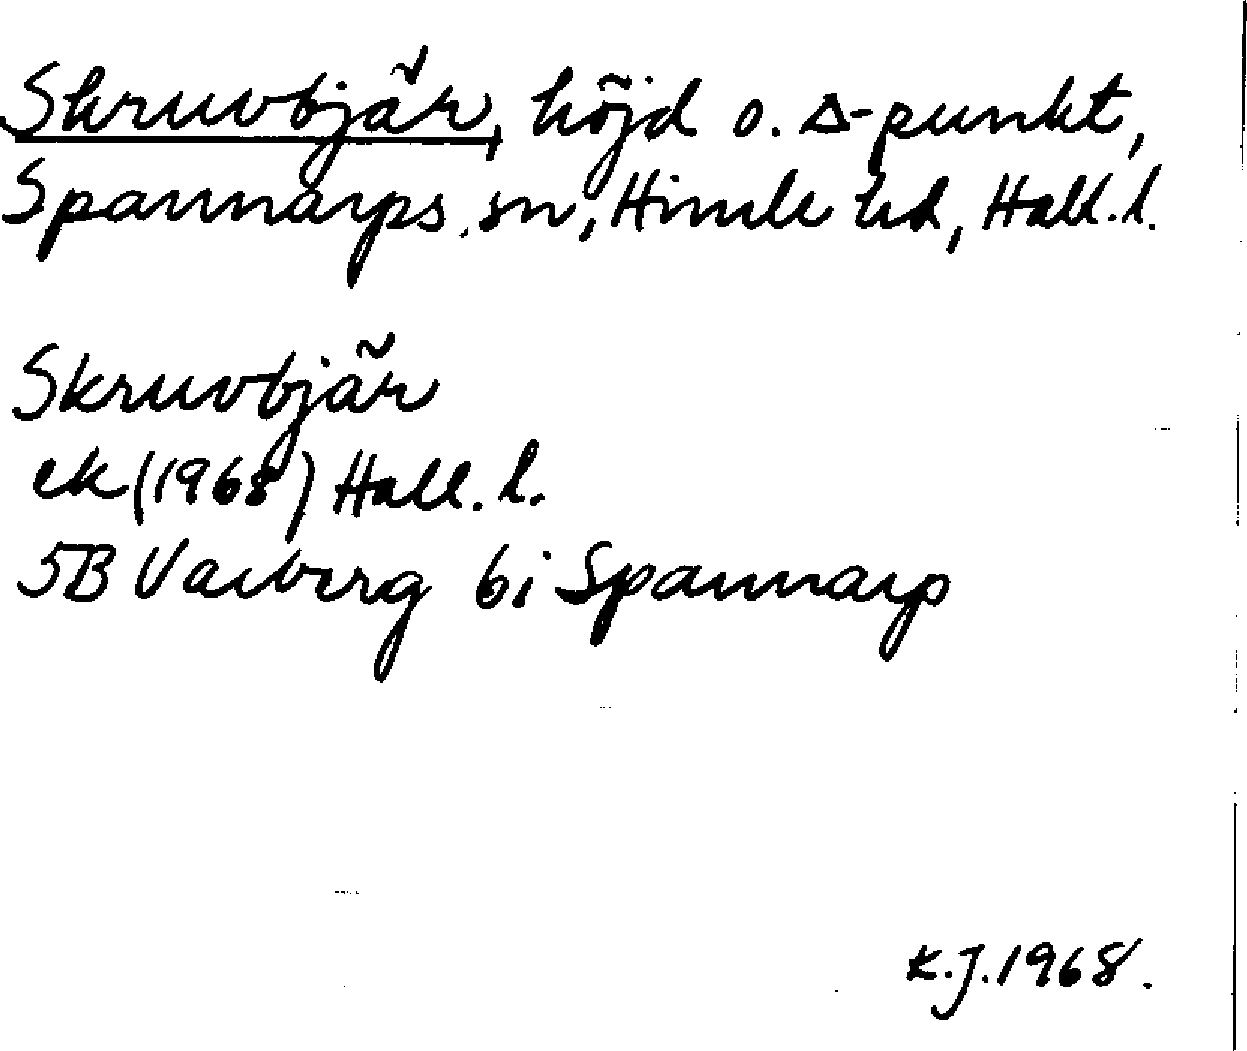 Skruvbjär, höjd o. Δ-punkt,
Spannarps sn, Himle hd, Hall. l.
Skruvbjär
ek (1968) Hall. l.
5B Varberg 6i Spannarp
K.J. 1968.